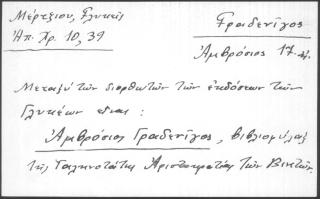 Μέρτζιου, Γλυκεῖς
Ἠπ. Χρ. 10, 39
Γραδενῖγος
Ἀμβρόσιος 17. αἰ.
Μεταξὺ τῶν διορθωτῶν τῶν ἐκδόσεων τῶν
Γλυκέων εἶναι :
Ἀμβρόσιος Γραδενῖγος, βιβλιοφύλαξ
τῆς Γαληνοτάτης Ἀριστοκρατίας τῶν Βενετῶν.